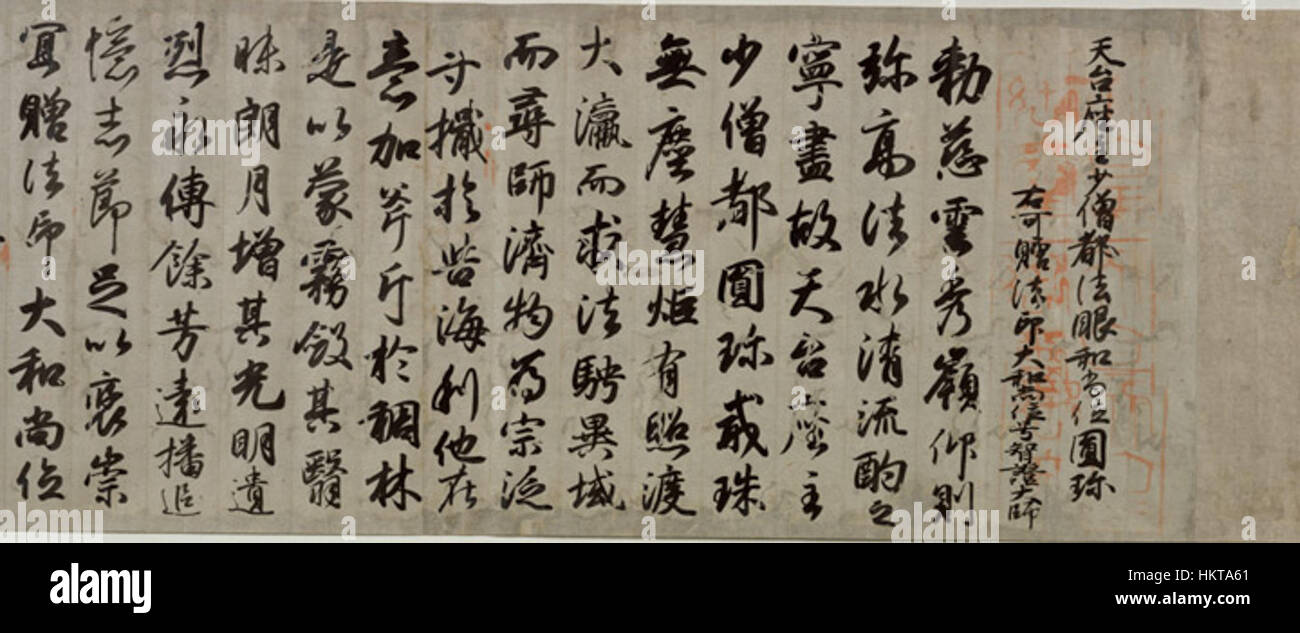 天台座主少僧都法眼和尚位圓珎
右可贈法印大和尚位号智證大師
勅慈雲秀嶺仰則
弥高法水清流酌之
寧盡故天台座主
少僧都圓珎戒珠
無塵慧炬有照渡
大瀛而求法騁異域
而尋師濟物為宗泛
舟檝於苦海利他在
意加斧斤於稠林
是以蒙霧斂其翳
昧朗月增其光明遺
烈永傳餘芳遠播追
憶志節足以褒崇
宜贈法印大和尚位
alamy
Image ID: HKTA61
www.alamy.com